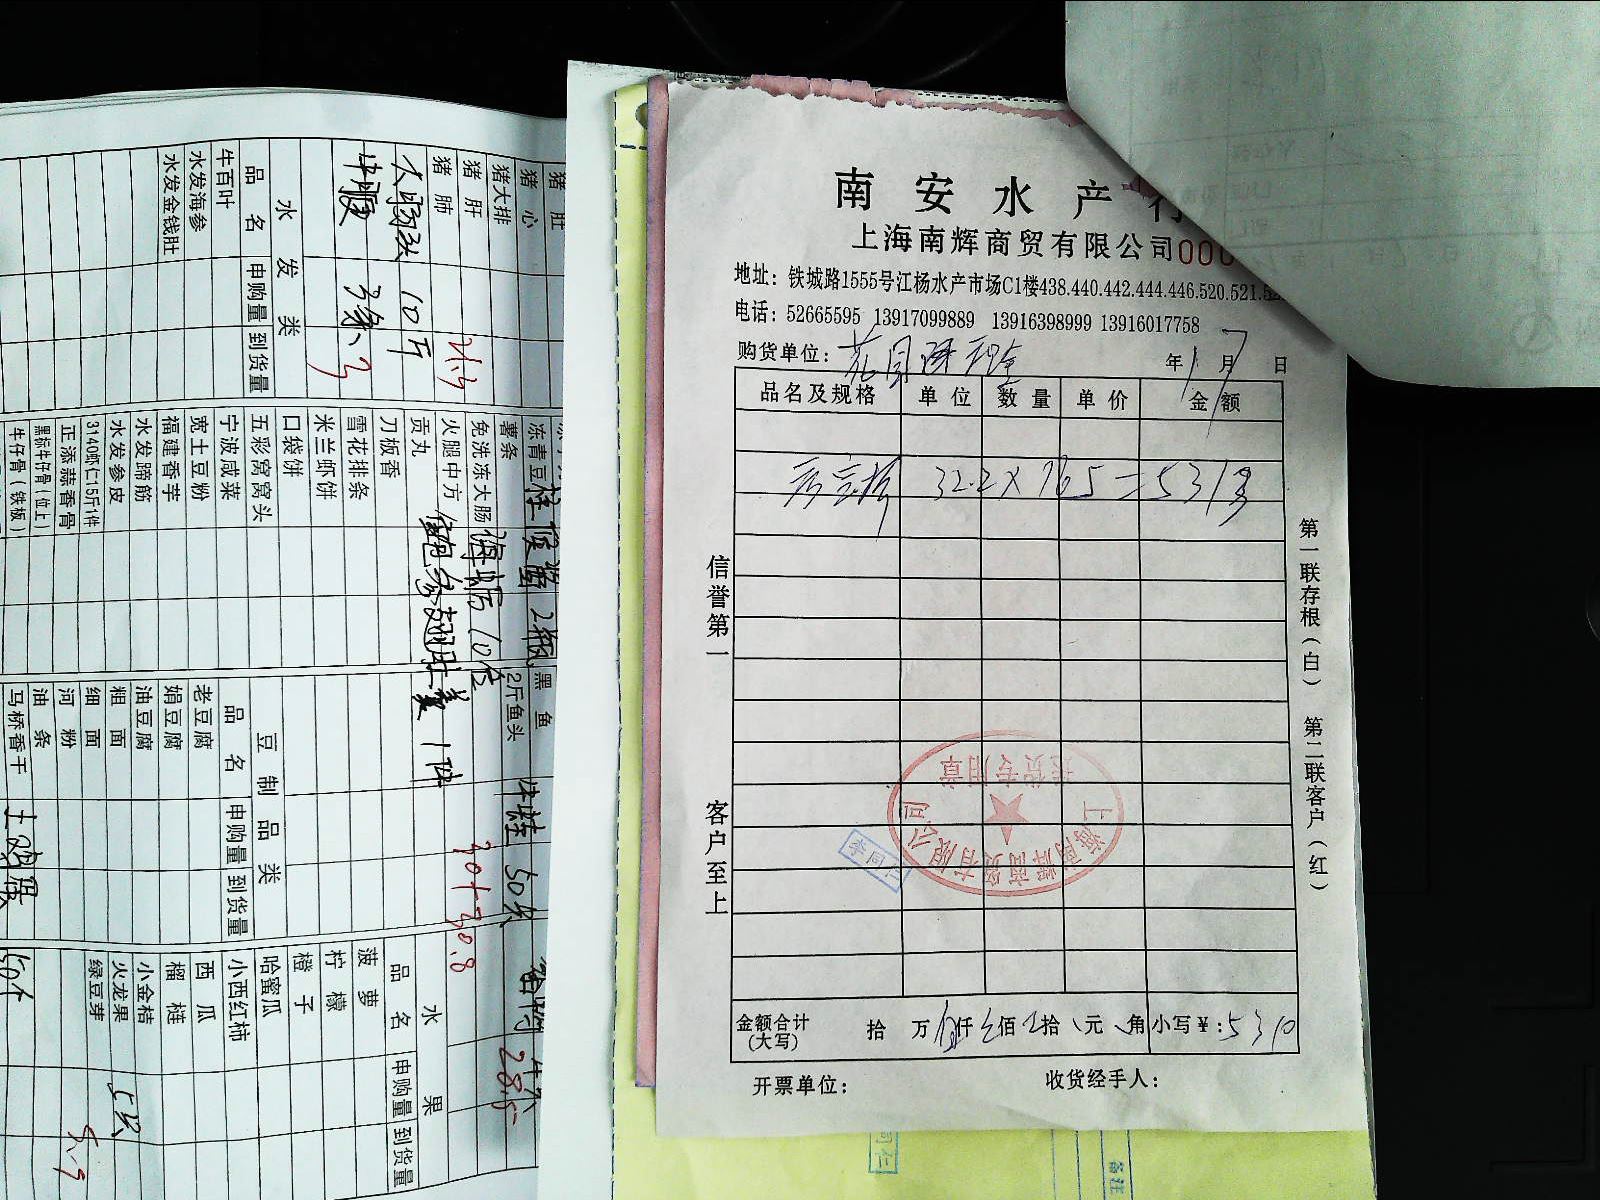 南安水产行
上海南辉商贸有限公司000
地址：铁城路1555号江杨水产市场C1楼438.440.442.444.446.520.521.5
电话：52665595 13917099889 13916398999 13916017758
购货单位：
年1月7日
品名及规格 单位 数量 单价 金额
32.2 X 165 = 5313
信誉第一
客户至上
第一联存根（白） 第二联客户（红）
上海南辉商贸有限公司
送货专用章
李同仁
金额合计（大写） 拾 万 仟 佰 拾 元 角 小写￥：5310
开票单位： 收货经手人：
同仁
备注
猪肚
猪心
猪大排
猪肝
猪肺 21.3
大肠头 10斤
牛腩 3条 3
水发类
品名 申购量 到货量
牛百叶
水发海参
水发金钱肚
冻青豆
薯条
免洗冻大肠
火腿中方
贡丸
刀板香
雪花排条
米兰虾饼
口袋饼
五彩窝窝头
宁波咸菜
宽土豆粉
福建香芋
水发蹄筋
水发参皮
3140虾仁15斤1件
正添蒜香骨
黑标牛仔骨(位上)
牛仔骨（铁板）
2瓶
10位
1件
黑鱼
2斤鱼头
牛蛙 50只
30+30.8
豆制品类
品名 申购量 到货量
老豆腐
娟豆腐
油豆腐
粗面
细面
河粉
油条
马桥香干
土鸡蛋 50个
28.5
水果
品名 申购量 到货量
菠萝
柠檬
橙子
哈蜜瓜
小西红柿
西瓜
榴梿
小金桔
火龙果 5
绿豆芽 5.9